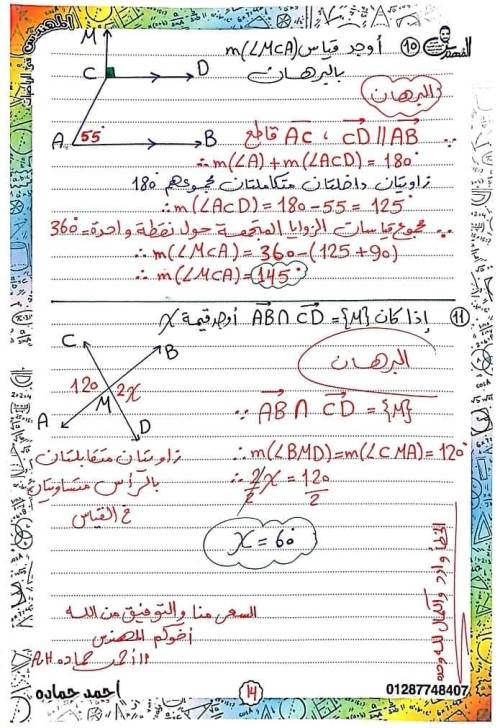 المهندس في الرياضيات
١٥ أوجد قياس m(∠McA)
بالبرهان
M
C
D
A
55°
B
البرهان
∵ CD // AB ، AC قاطع
∴ m(∠A) + m(∠AcD) = 180°
زاويتان داخلتان متكاملتان مجموعهم 180°
∴ m(∠AcD) = 180 - 55 = 125°
∵ مجموع قياسات الزوايا المتجمعة حول نقطة واحدة = 360°
∴ m(∠McA) = 360 - (125 + 90)
∴ m(∠McA) = 145°
١١ إذا كان AB ∩ CD = {M} أوجد قيمة X
C
B
120
2x
M
A
D
البرهان
∵ AB ∩ CD = {M}
∴ m(∠BMD) = m(∠CMA) = 120°
زاويتان متقابلتان
بالرأس متساويتان
في القياس
∴ 2/2 X = 120/2
X = 60
الخطأ وارد والكمال لله وحده
السعى منا والتوفيق من الله
أخوكم المهندس
أ/ أحمد حماده A.H
احمد حماده
14
01287748407